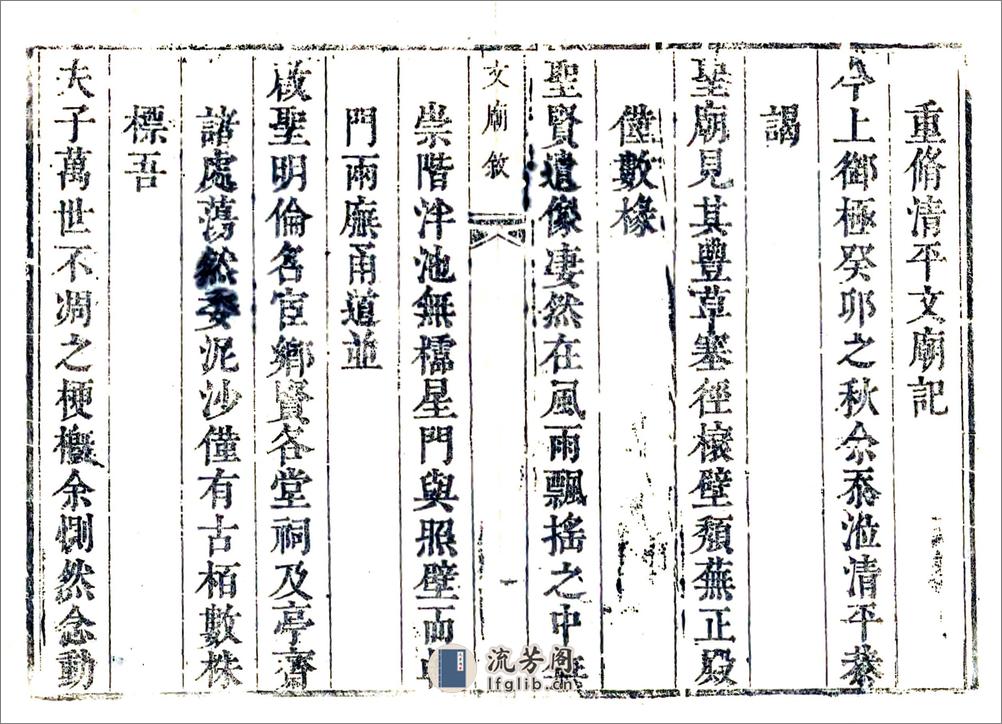 重脩清平文廟記
今上御極癸卯之秋余忝涖清平恭
謁
聖廟見其豐草塞徑榱壁頹蕪正殿
僅數椽
聖賢遺像凄然在風雨飄搖之中無
文廟敘
崇階泮池無櫺星門與照壁而
門兩廡甬道並
啟聖明倫名宦鄉賢各堂祠及亭齋
諸處蕩然委泥沙僅有古栢數株
標吾
夫子萬世不凋之梗槩余惻然念動
流芳阁
lfglib.cn